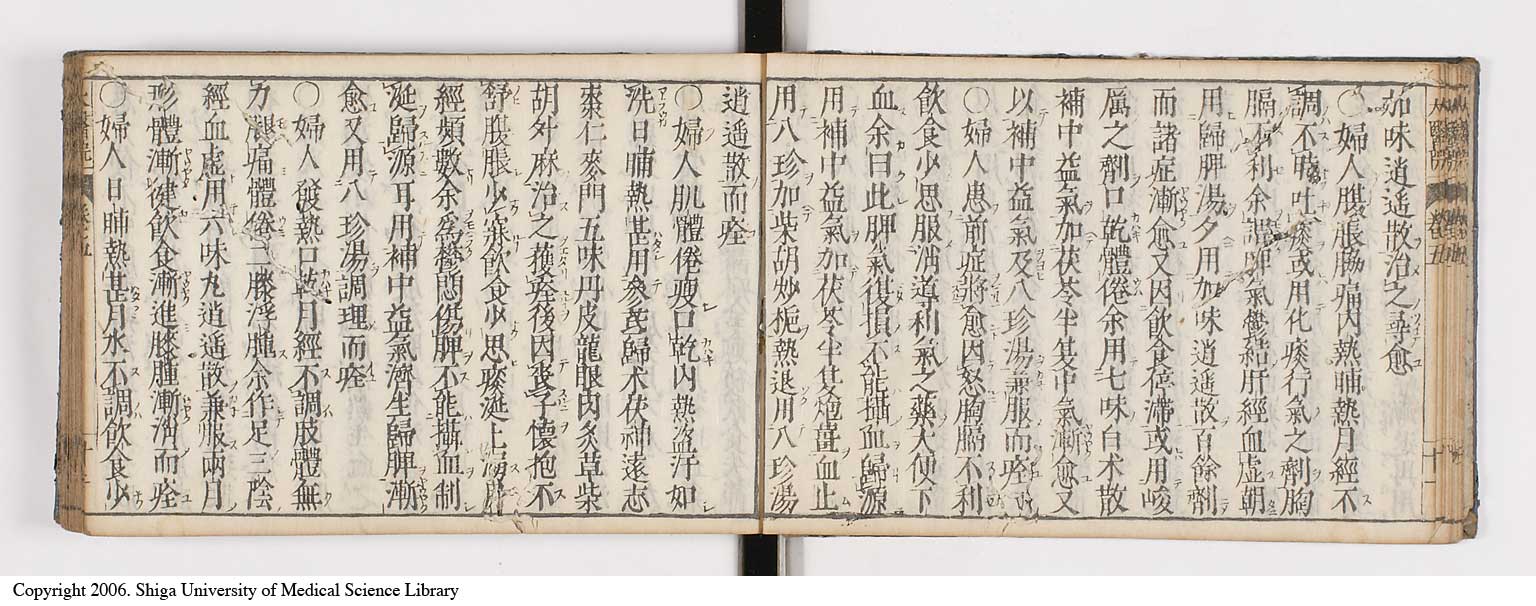 加味逍遥散治之尋愈
○婦人腹脹脇痛内熱晡熱月經不
調不時吐痰或用化痰行氣之劑胸
膈不利余謂脾氣鬱結肝經血虚朝
用歸脾湯夕用加味逍遥散百餘劑
而諸症漸愈又因飲食停滯或用峻
厲之劑口乾體倦余用七味白术散
補中益氣加茯苓半夏中氣漸愈又
以補中益氣及八珍湯兼服而痊
○婦人患前症將愈因怒胸膈不利
飲食少思服消導利氣之藥大便下
血余曰此脾氣復損不能攝血歸源
用補中益氣加茯苓半夏炮薑血止
用八珍加柴胡炒梔熱退用八珍湯
逍遥散而痊
○婦人肌體倦瘦口乾内熱盗汗如
洗日晡熱甚用參芪歸术茯神遠志
棗仁麥門五味丹皮龍眼肉炙草柴
胡升麻治之獲痊後因喪子懷抱不
舒腹脹少寐飲食少思痰涎上涌月
經頻數余爲鬱悶傷脾不能攝血制
涎歸源耳用補中益氣濟生歸脾漸
愈又用八珍湯調理而痊
○婦人發熱口乾月經不調肢體無
力腿痛體倦二膝浮腫余作足三陰
經血虚用六味丸逍遥散兼服兩月
形體漸健飲食漸進膝腫漸消而痊
○婦人日晡熱甚月水不調飲食少
Copyright 2006. Shiga University of Medical Science Library